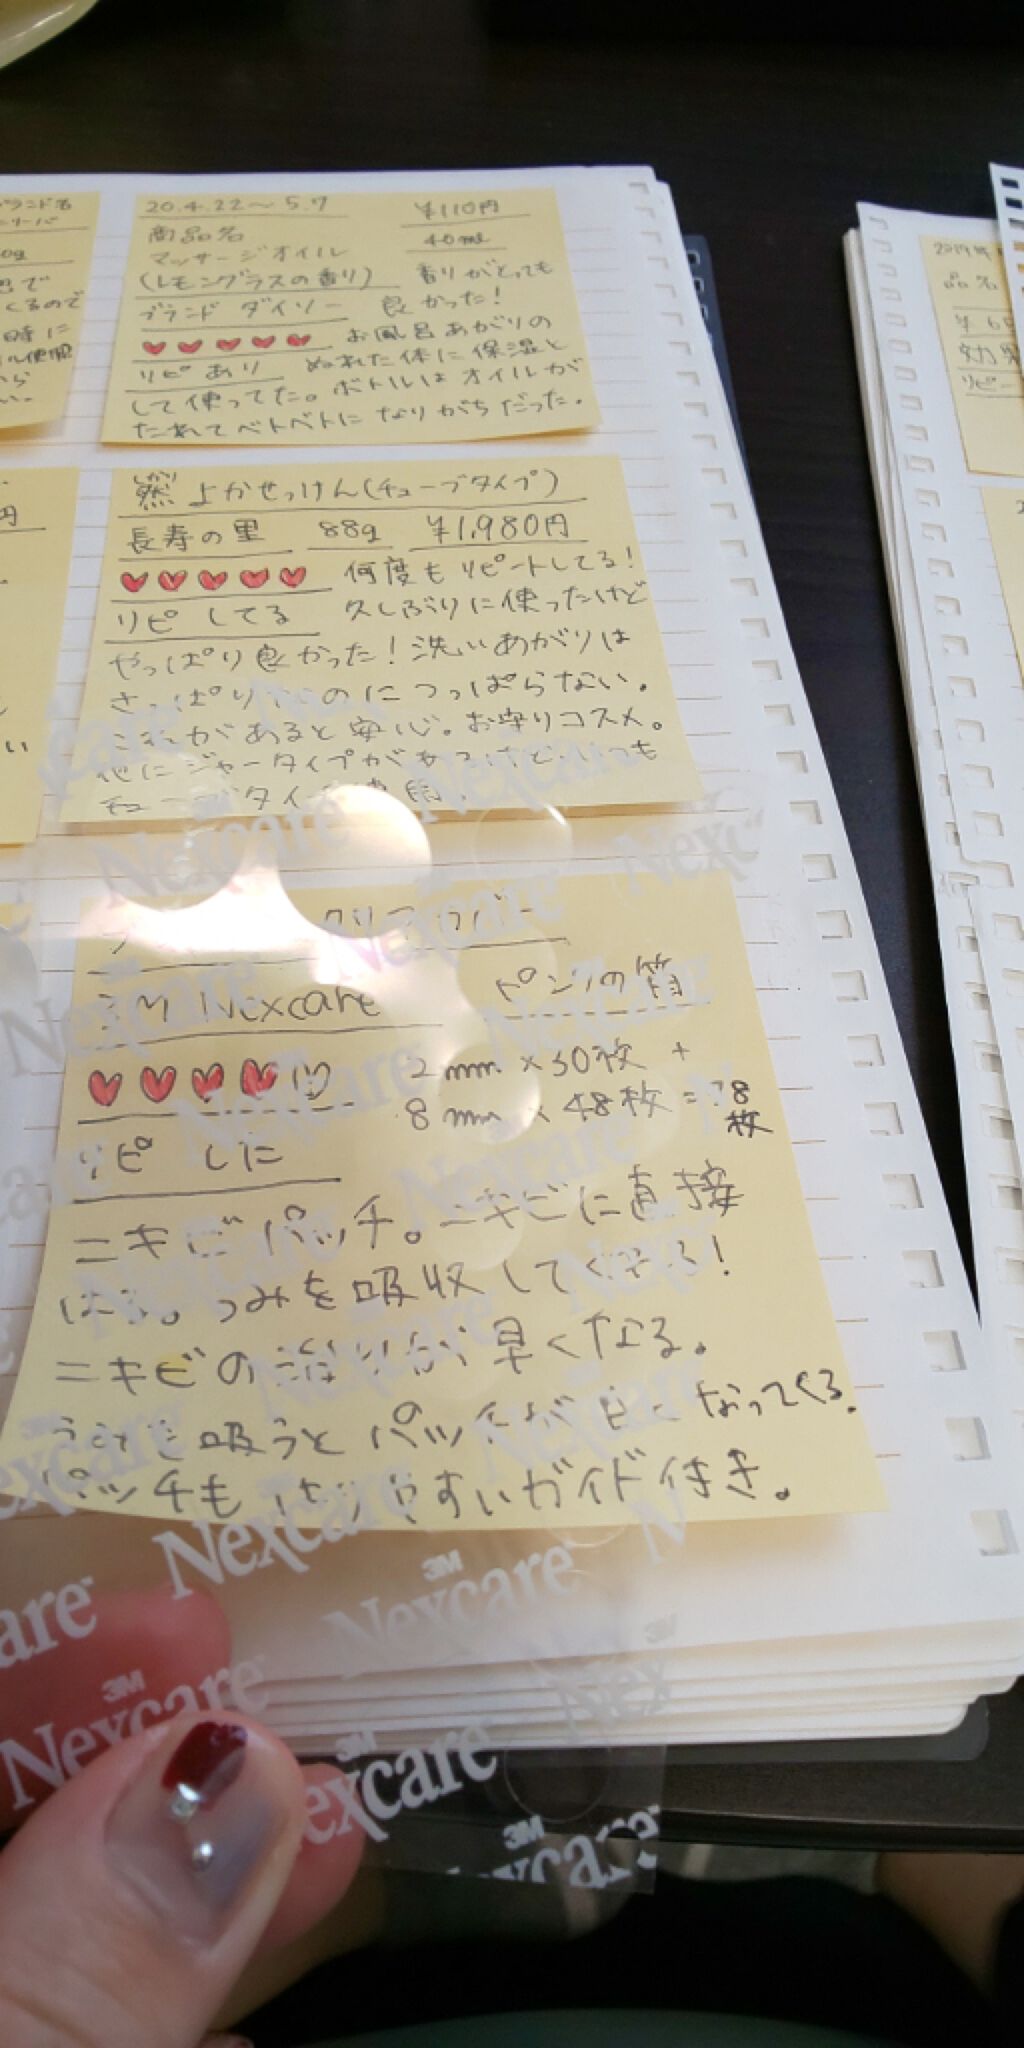 ブランド名
20.4.22〜5.7
¥110円
商品名
40ml
マッサージオイル
(レモングラスの香り)
香りがとても
良かった!
ブランド ダイソー
お風呂あがりの
リピあり
ぬれた体に保湿と
して使ってた。ボトルはオイルが
たれてベトベトになりがちだった。
くるので
時に
から
い。
円
然 よかせっけん(チューブタイプ)
長寿の里 88g ¥1,980円
何度もリピートしてる!
リピしてる
久しぶりに使ったけど
やっぱり良かった!洗いあがりは
さっぱりなのにつっぱらない。
これがあると安心。お守りコスメ。
他にジャータイプがあるけどいつも
チューブタイプ
3M Nexcare
ピンクの箱
mm×30枚 +
8mm×48枚=78
枚
リピした
ニキビパッチ。ニキビに直接
はる。うみを吸収してくれる!
ニキビの治りが早くなる。
うみを吸うとパッチが白くなってくる。
パッチもはりやすいガイド付き。
品名
効果
リピ
3M
Nexcare
3M
Nexcare
3M
Nexcare
3M
Nexcare
3M
Nexcare